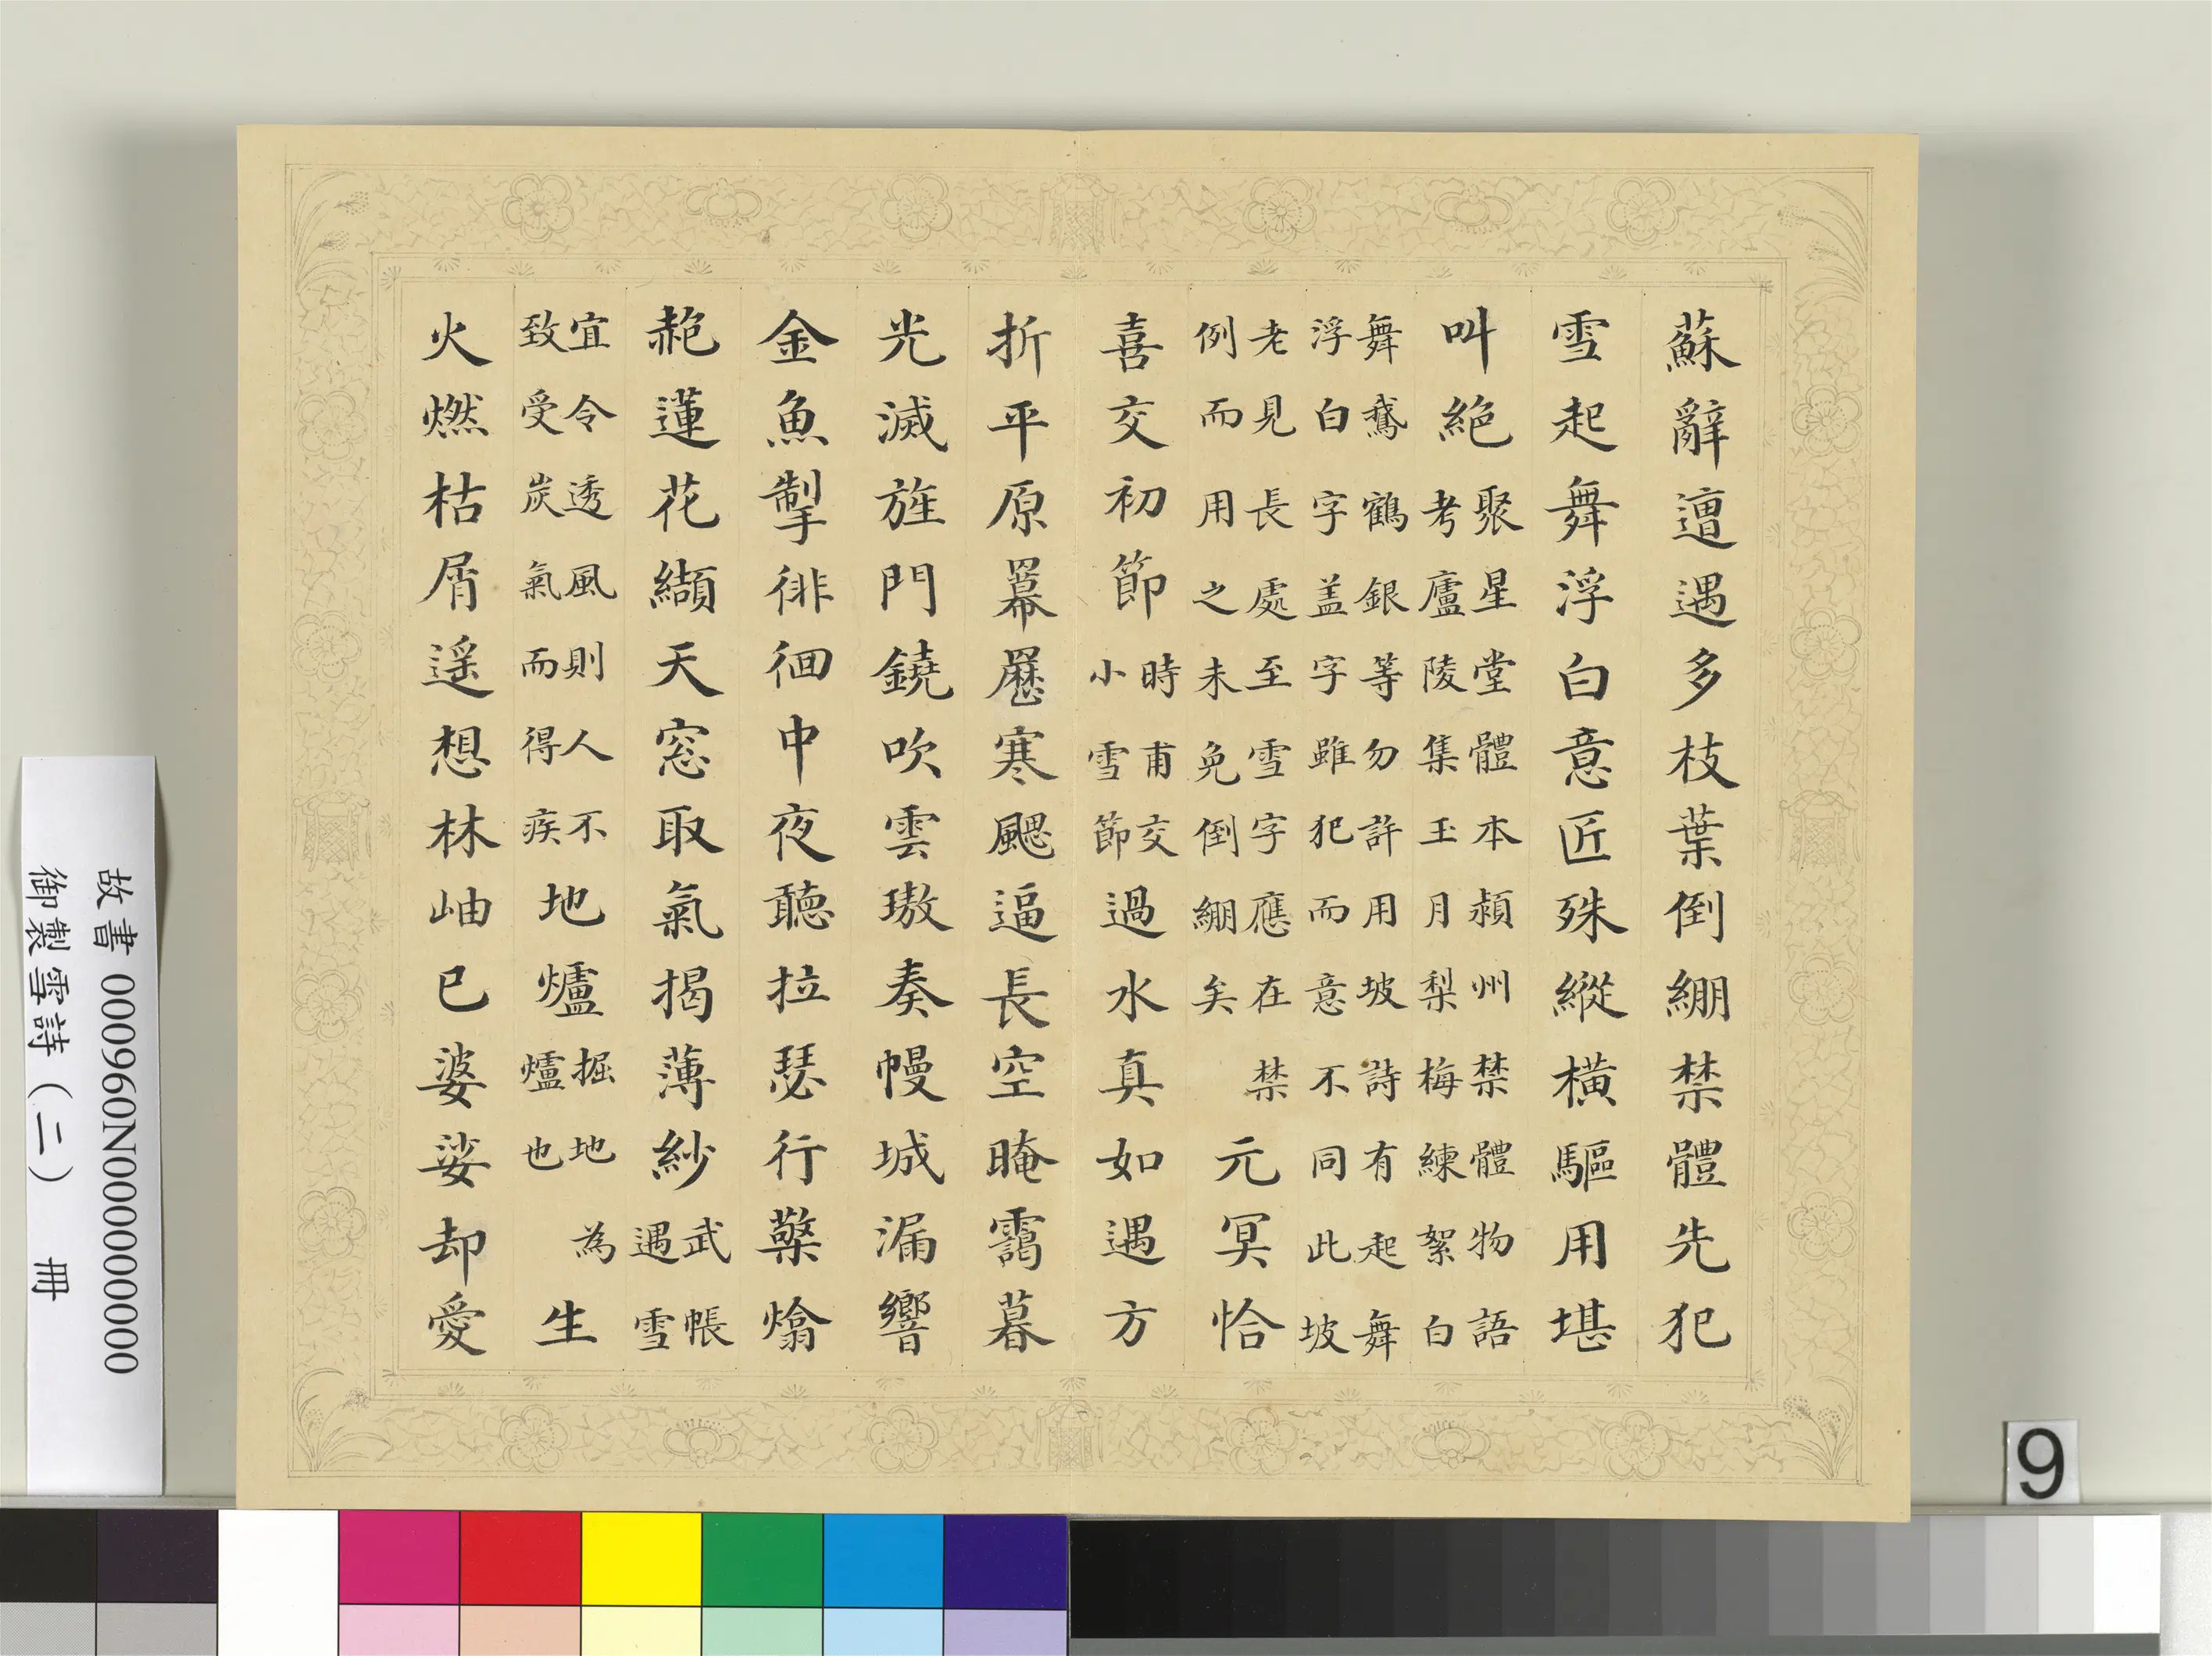 蘇辭邅遇多枝葉倒綳禁體先犯
雪起舞浮白意匠殊縱橫驅用堪
叫絕
聚星堂體本潁州禁體物語
考廬陵集玉月梨梅練絮白
舞鵞鶴銀等勿許用坡詩有起舞
浮白字盖字雖犯而意不同此坡
老見長處至雪字應在禁
例而用之未免倒綳矣
元冥恰
喜交初節
時甫交
小雪節
過水真如遇方
折平原羃䍥寒颸逼長空晻靄暮
光滅旌門鐃吹雲璈奏幔城漏響
金魚掣徘徊中夜聽拉瑟行檠熻
赩蓮花纈天窓取氣揭薄紗
武帳
遇雪
宜令透風則人不
致受炭氣而得疾
地爐
掘地為
爐也
生
火燃枯屑遥想林岫已婆娑却愛
故書 000960N000000000
御製雪詩（二） 冊
9